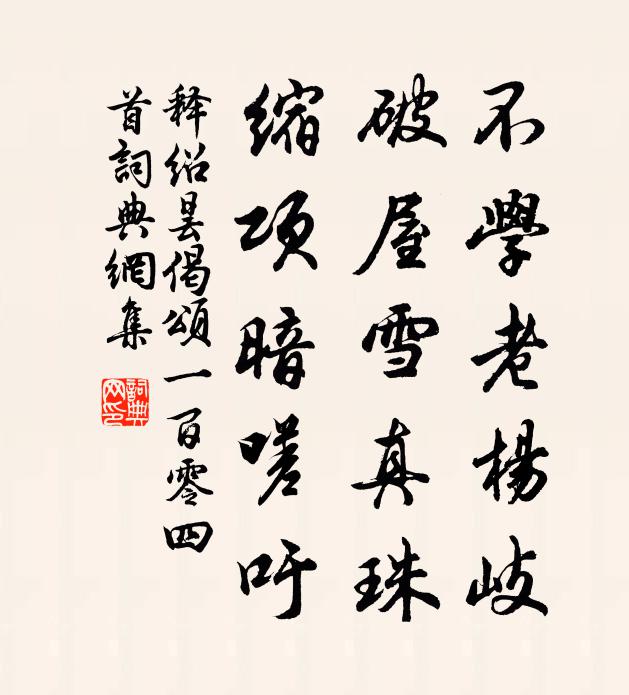 不學老楊岐
破屋雪真珠
縮項暗嗟吁
釋紹曇偈頌一百零四
首詞典網集
詞典网印